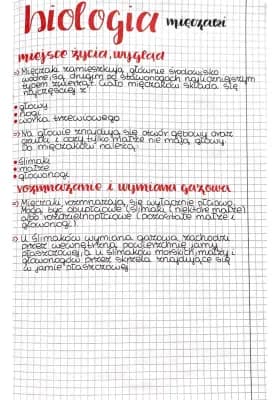 biologia mięczaki
miejsce życia, wygląd
⇒ Mięczaki zamieszkują głównie środowisko
wodne, są drugim po stawonogach najliczniejszym
typem zwierząt. Ciało mięczaków składa się
najczęściej z
• głowy
• nogi
• worka trzewiowego
⇒ Na głowie znajduje się otwór gębowy oraz
czułki i oczy, tylko małże nie mają głowy.
Do mięczaków należą:
• ślimaki
• małże
• głowonogi
rozmnażanie i wymiana gazowa
⇒ Mięczaki rozmnażają się wyłącznie płciowo.
Mogą być obupłciowe (ślimaki i niektóre małże)
albo rozdzielnopłciowe (pozostałe małże i
głowonogi).
⇒ U ślimaków wymiana gazowa zachodzi
przez wewnętrzną powierzchnię jamy
płaszczowej, a u ślimaków morskich, małży i
głowonogów przez skrzela znajdujące się
w jamie płaszczowej